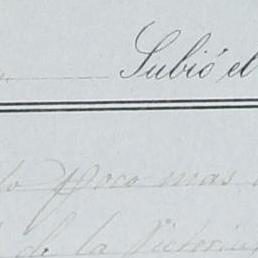 Subió el
lo poco mas
de la Victoria